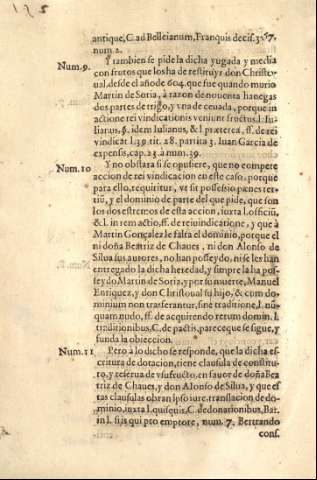 125
antique, C. ad Belleianum, Franquis decis. 367.
num. 2.
Num. 9. Y tambien se pide la dicha yugada y media
con frutos que los ha de restituyr don Christo-
ual, desde el año de 604. que fue quando murio
Martin de Soria, à razon de nouenta hanegas
dos partes de trigo, y vna de ceuada, porque in
actione rei vindicationis veniunt fructus. l. Iu-
lianus, §. idem Iulianus, & l. præterea, ff. de rei
vindicat. l. 39. tit. 28. partita 3. Iuan Garcia de
expensis, cap. 23. à num. 39.
Num. 10 Y no obstara si se opusiere, que no compete
accion de rei vindicacion en este caso, porque
para ello, requiritur, vt sit possessio pænes reum
tiū, y el dominio de parte del que pide, que son
los dos estremos de esta accion, iuxta l. officiū,
& l. in rem actio, ff. de rei uindicatione, y que à
Martin Gonçalez le falta el dominio, porque el
ni doña Beatriz de Chaues, ni don Alonso de
Silua sus autores, no han posseydo, ni se les han
entregado la dicha heredad, y simpre la ha pos-
seydo Martin de Soria, y por su muerte, Manuel
Enriquez, y don Christoual su hijo, & cum do-
minium non trasferantur, sine traditione, l. nū-
quam nudo, ff. de acquirendo rerum domin. l.
traditionibus, C. de pactis, parece que se sigue, y
funda la obieccion.
Num. 11 Pero à lo dicho se responde, que la dicha es-
critura de dotacion, tiene clausula de constitu-
to, y reserua de vsufructo, en fauor de doña Bea
triz de Chaues, y don Alonso de Silua, y que es
tas clausulas obran ipso iure, translacion de do-
minio, iuxta l. quisquis, C. de donationibus, Bar.
in l. si is qui pro emptore, num. 7. Bertrando
cons.